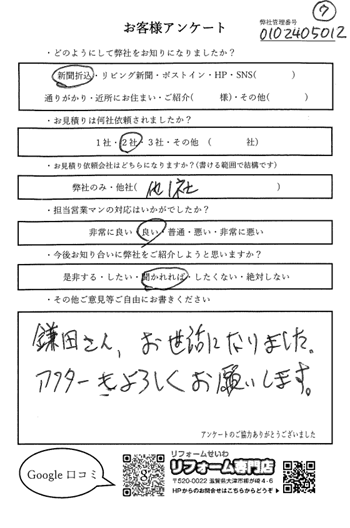 ⑦
お客様アンケート
弊社管理番号
0102405012
・どのようにして弊社をお知りになりましたか?
新聞折込・リビング新聞・ポストイン・HP・SNS( )
通りがかり・近所にお住まい・ご紹介( 様)・その他( )
・お見積りは何社依頼されましたか?
1社・2社・3社・その他 ( 社)
・お見積り依頼会社はどちらになりますか?(書ける範囲で結構です)
弊社のみ・他社( 他1社 )
・担当営業マンの対応はいかがでしたか?
非常に良い・良い・普通・悪い・非常に悪い
・今後お知り合いに弊社をご紹介しようと思いますか?
是非する・したい・聞かれれば・したくない・絶対しない
・その他ご意見等ご自由にお書きください
鎌田さん、お世話になりました。
アフターもよろしくお願いします。
アンケートのご協力ありがとうございました
Google 口コミ
リフォームせいわ
リフォーム専門店
〒520-0022 滋賀県大津市柳が崎4-6
HPからのお問合せはこちらからどうぞ▶